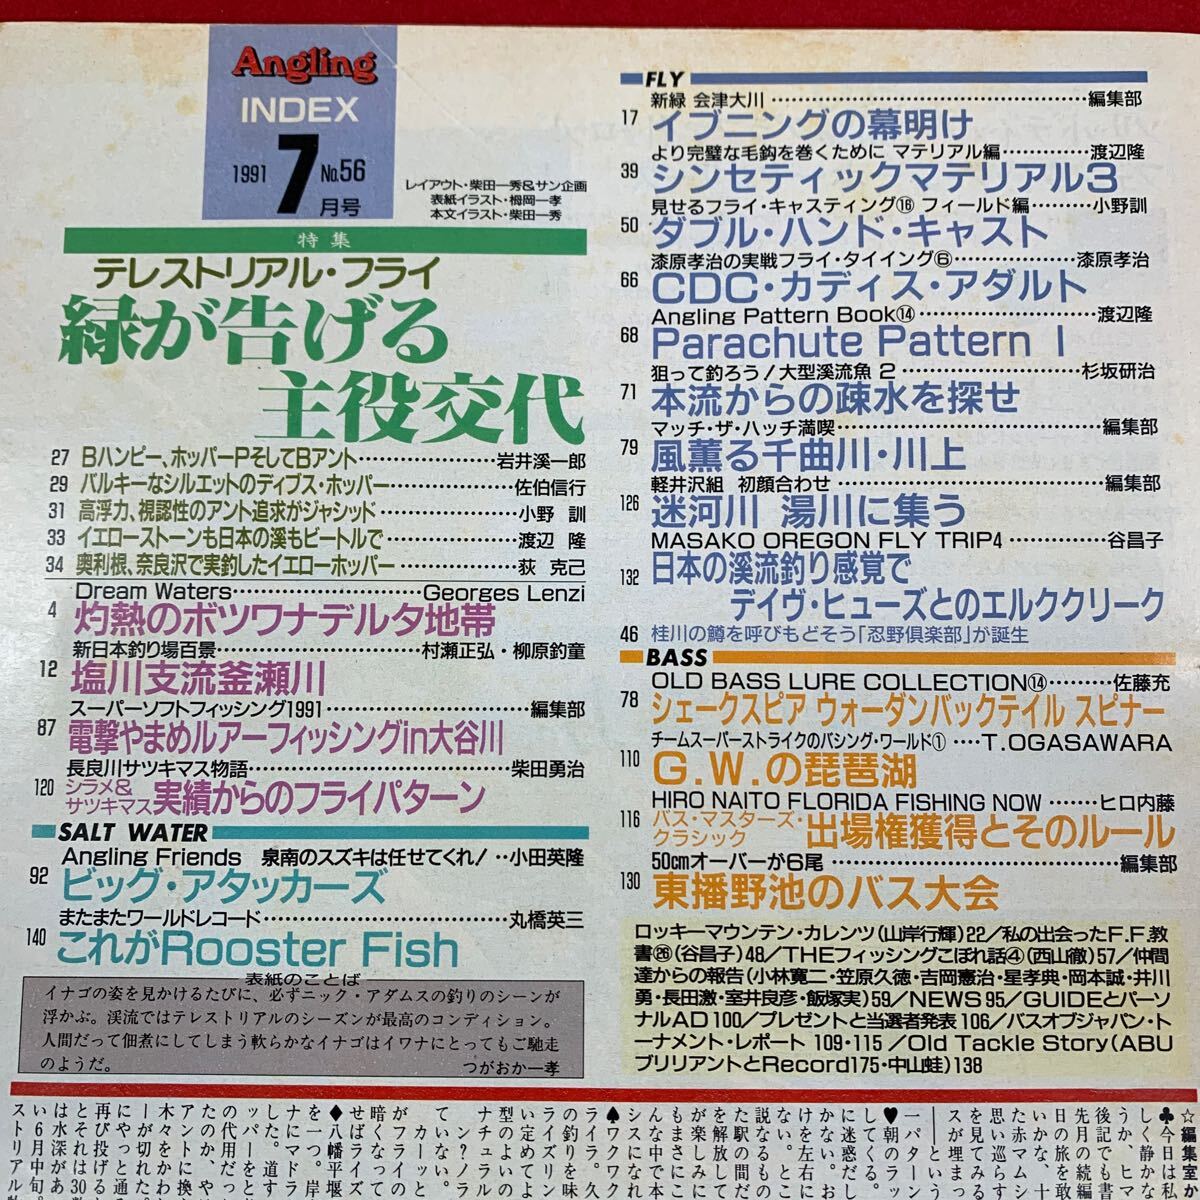 Angling
INDEX
1991 7月号 No.56
レイアウト・柴田一秀&サン企画
表紙イラスト・栂岡一孝
本文イラスト・柴田一秀
特集
テレストリアル・フライ
緑が告げる
主役交代
27 Bハンピー、ホッパーPそしてBアント………岩井渓一郎
29 バルキーなシルエットのディプス・ホッパー………佐伯信行
31 高浮力、視認性のアント追求がジャシッド………小野 訓
33 イエローストーンも日本の渓もビートルで………渡辺 隆
34 奥利根、奈良沢で実釣したイエローホッパー………荻 克己
Dream Waters………Georges Lenzi
4 灼熱のボツワナデルタ地帯
新日本釣り場百景………村瀬正弘・柳原釣童
12 塩川支流釜瀬川
スーパーソフトフィッシング1991………編集部
87 電撃やまめルアーフィッシングin大谷川
長良川サツキマス物語………柴田勇治
120 シラメ&サツキマス 実績からのフライパターン
SALT WATER
Angling Friends 泉南のスズキは任せてくれ!‥小田英隆
92 ビッグ・アタッカーズ
またまたワールドレコード………丸橋英三
140 これがRooster Fish
表紙のことば
イナゴの姿を見かけるたびに、必ずニック・アダムスの釣りのシーンが
浮かぶ。渓流ではテレストリアルのシーズンが最高のコンディション。
人間だって佃煮にしてしまう軟らかなイナゴはイワナにとってもご馳走
のようだ。 つがおか一孝
FLY
新緑 会津大川………編集部
17 イブニングの幕明け
より完璧な毛鉤を巻くために マテリアル編………渡辺隆
39 シンセティックマテリアル3
見せるフライ・キャスティング⑯ フィールド編………小野訓
50 ダブル・ハンド・キャスト
漆原孝治の実戦フライ・タイイング⑥………漆原孝治
66 CDC・カディス・アダルト
Angling Pattern Book⑭………渡辺隆
68 Parachute Pattern I
狙って釣ろう!大型渓流魚 2………杉坂研治
71 本流からの疎水を探せ
マッチ・ザ・ハッチ満喫………編集部
79 風薫る千曲川・川上
軽井沢組 初顔合わせ………編集部
126 迷河川 湯川に集う
MASAKO OREGON FLY TRIP4………谷昌子
132 日本の渓流釣り感覚で
デイヴ・ヒューズとのエルククリーク
46 桂川の鱒を呼びもどそう「忍野倶楽部」が誕生
BASS
OLD BASS LURE COLLECTION⑭………佐藤充
78 シェークスピア ウォーダンバックテイル スピナー
チームスーパーストライクのバシング・ワールド①‥‥T.OGASAWARA
110 G.W.の琵琶湖
HIRO NAITO FLORIDA FISHING NOW………ヒロ内藤
116 バス・マスターズ・クラシック 出場権獲得とそのルール
50cmオーバーが6尾………編集部
130 東播野池のバス大会
ロッキーマウンテン・カレンツ(山岸行輝)22/私の出会ったF.F.教
書㉖(谷昌子)48/THEフィッシングこぼれ話④(西山徹)57/仲間
達からの報告(小林寛二・笠原久徳・吉岡憲治・星孝典・岡本誠・井川
勇・長田激・室井良彦・飯塚実)59/NEWS 95/GUIDEとパーソ
ナルAD 100/プレゼントと当選者発表 106/バスオブジャパン・ト
ーナメント・レポート 109・115/Old Tackle Story(ABU
ブリリアントとRecord175・中山蛙)138